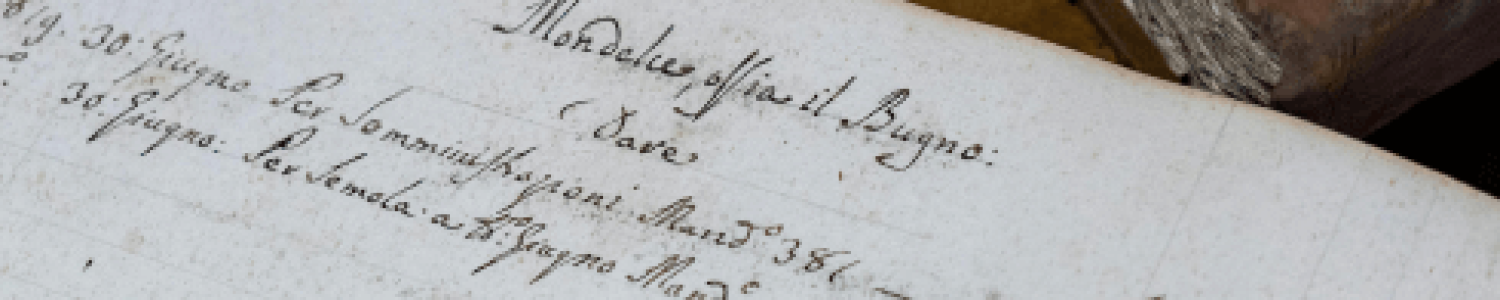 Mondelce, ossia il Bugno:
Dave
30: Giugno Per Somministrazioni Mand.º 386
30: Giugno: Per Semola: a Giugno Mand.º